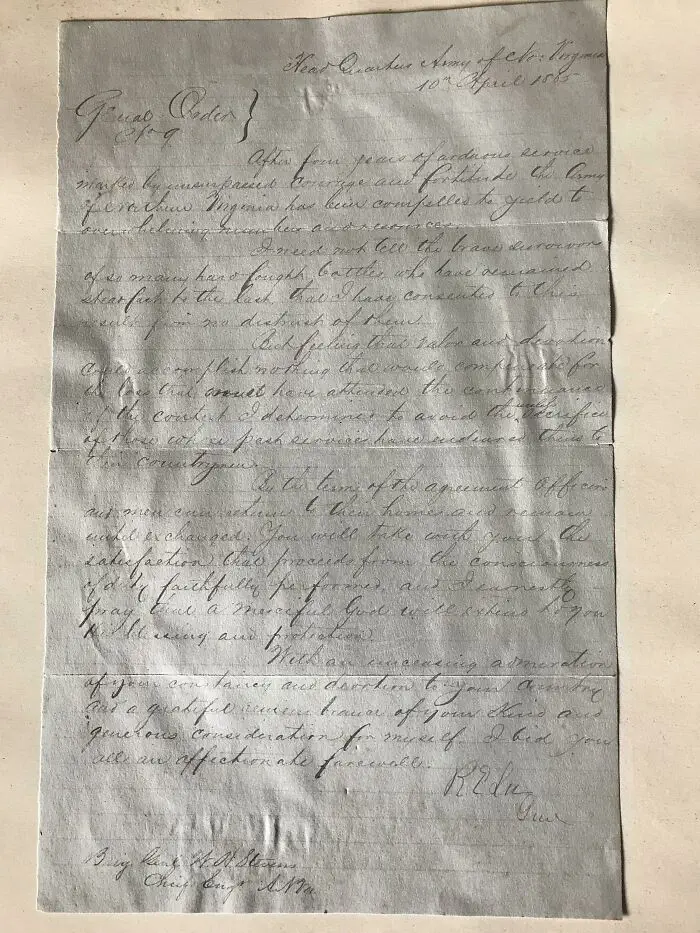 Head Quarters Army of No: Virginia
10th April 1865
General Order
No 9
After four years of arduous service
marked by unsurpassed courage and fortitude the Army
of Northern Virginia has been compelled to yield to
overwhelming numbers and resources.
I need not tell the brave survivors
of so many hard fought battles who have remained
steadfast to the last that I have consented to this
result from no distrust of them.
But feeling that valor and devotion
could accomplish nothing that would compensate for
the loss that must have attended the continuance
of the contest I determined to avoid the useless sacrifice
of those whose past services have endeared them to
their countrymen.
By the terms of the agreement Officers
and men can return to their homes and remain
until exchanged. You will take with you the
satisfaction that proceeds from the consciousness
of duty faithfully performed, and I earnestly
pray that a merciful God will extend to you
His blessing and protection
With an unceasing admiration
of your constancy and devotion to your Country
and a grateful remembrance of your kind and
generous consideration for myself I bid you
all an affectionate farewell.
R E Lee
Genl
Brig Genl W H Stevens
Chief Engr A N Va